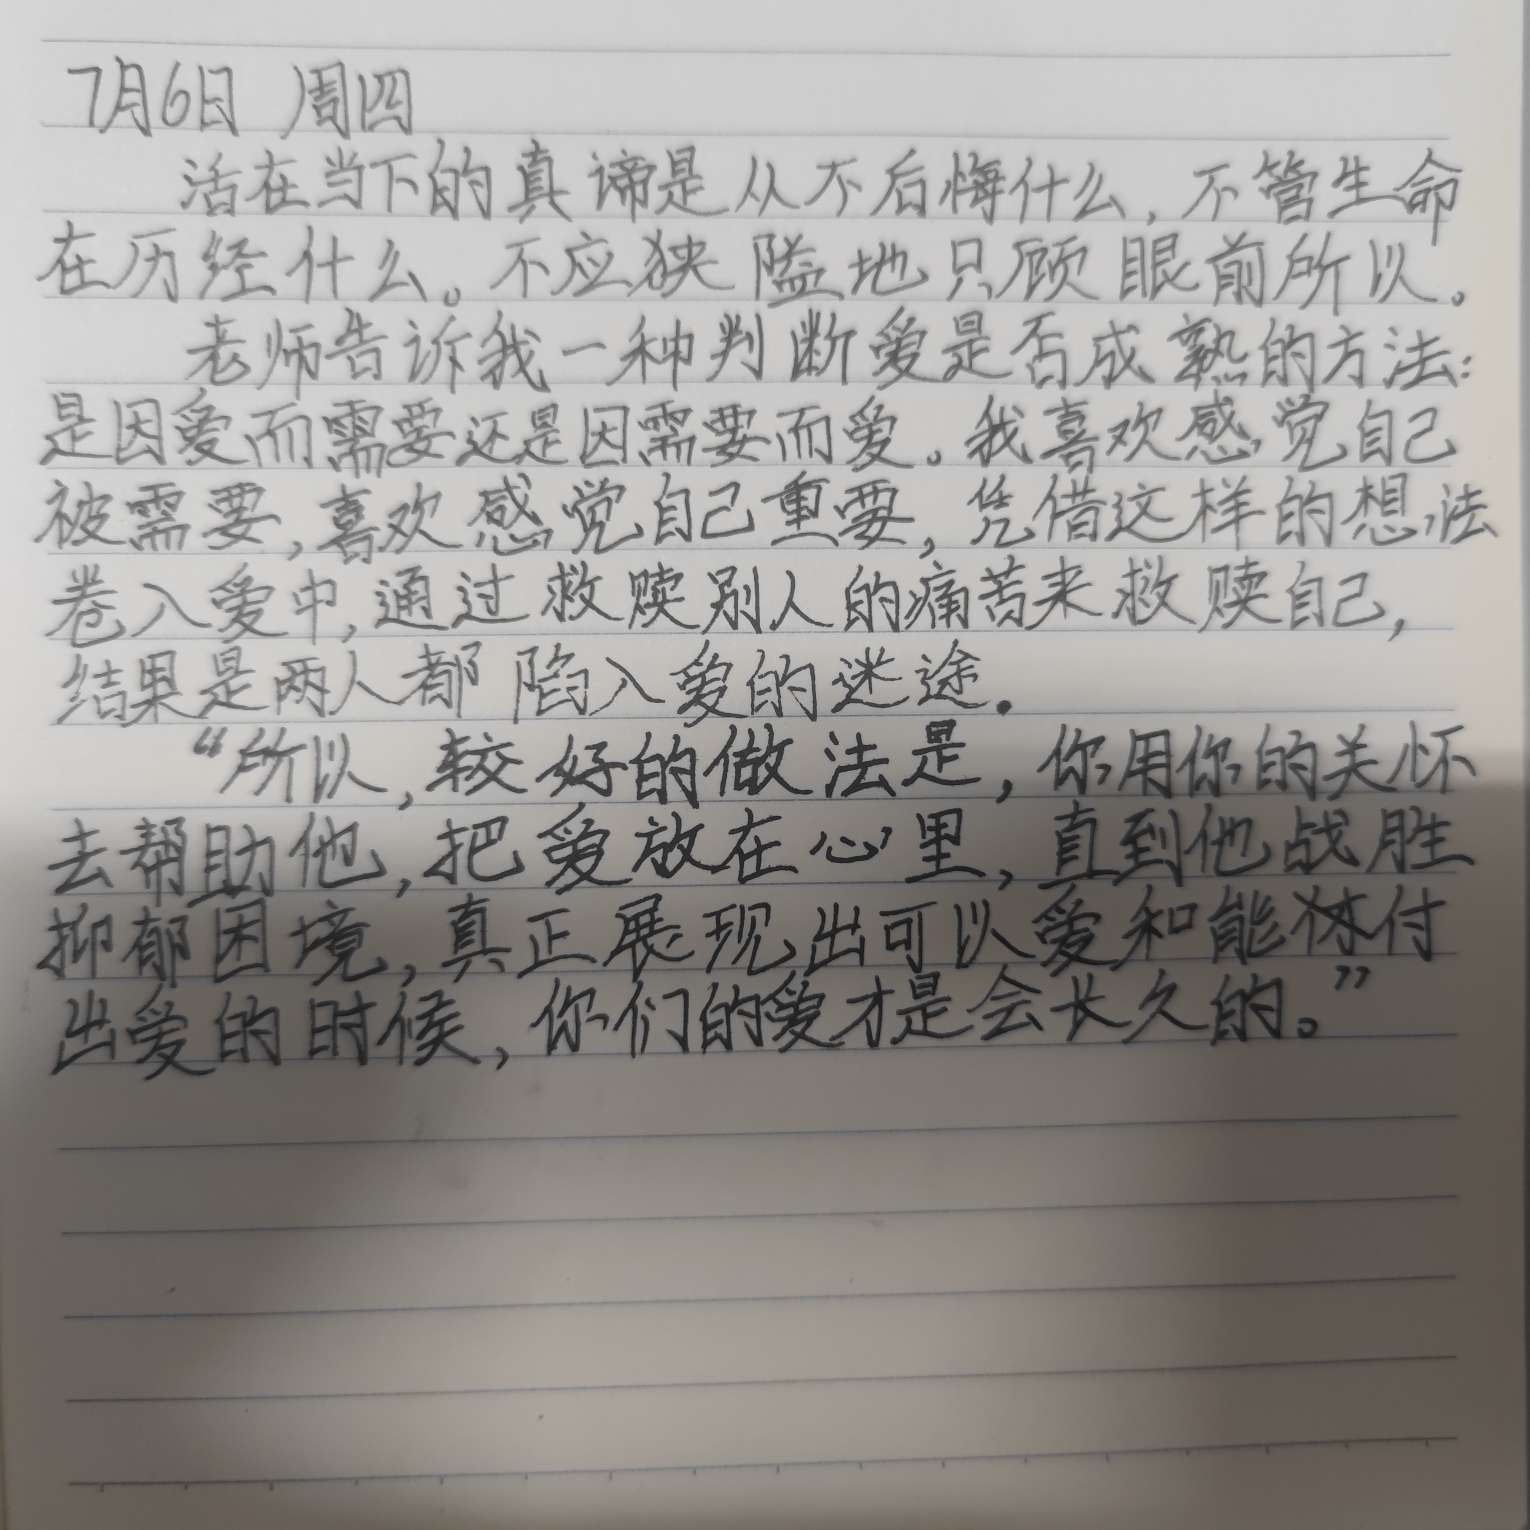 7月6日 周四
活在当下的真谛是从不后悔什么,不管生命
在历经什么。不应狭隘地只顾眼前所以。
老师告诉我一种判断爱是否成熟的方法:
是因爱而需要还是因需要而爱。我喜欢感觉自己
被需要,喜欢感觉自己重要,凭借这样的想法
卷入爱中,通过救赎别人的痛苦来救赎自己,
结果是两人都陷入爱的迷途.
“所以,较好的做法是,你用你的关怀
去帮助他,把爱放在心里,直到他战胜
抑郁困境,真正展现出可以爱和能付
出爱的时候,你们的爱才是会长久的。”